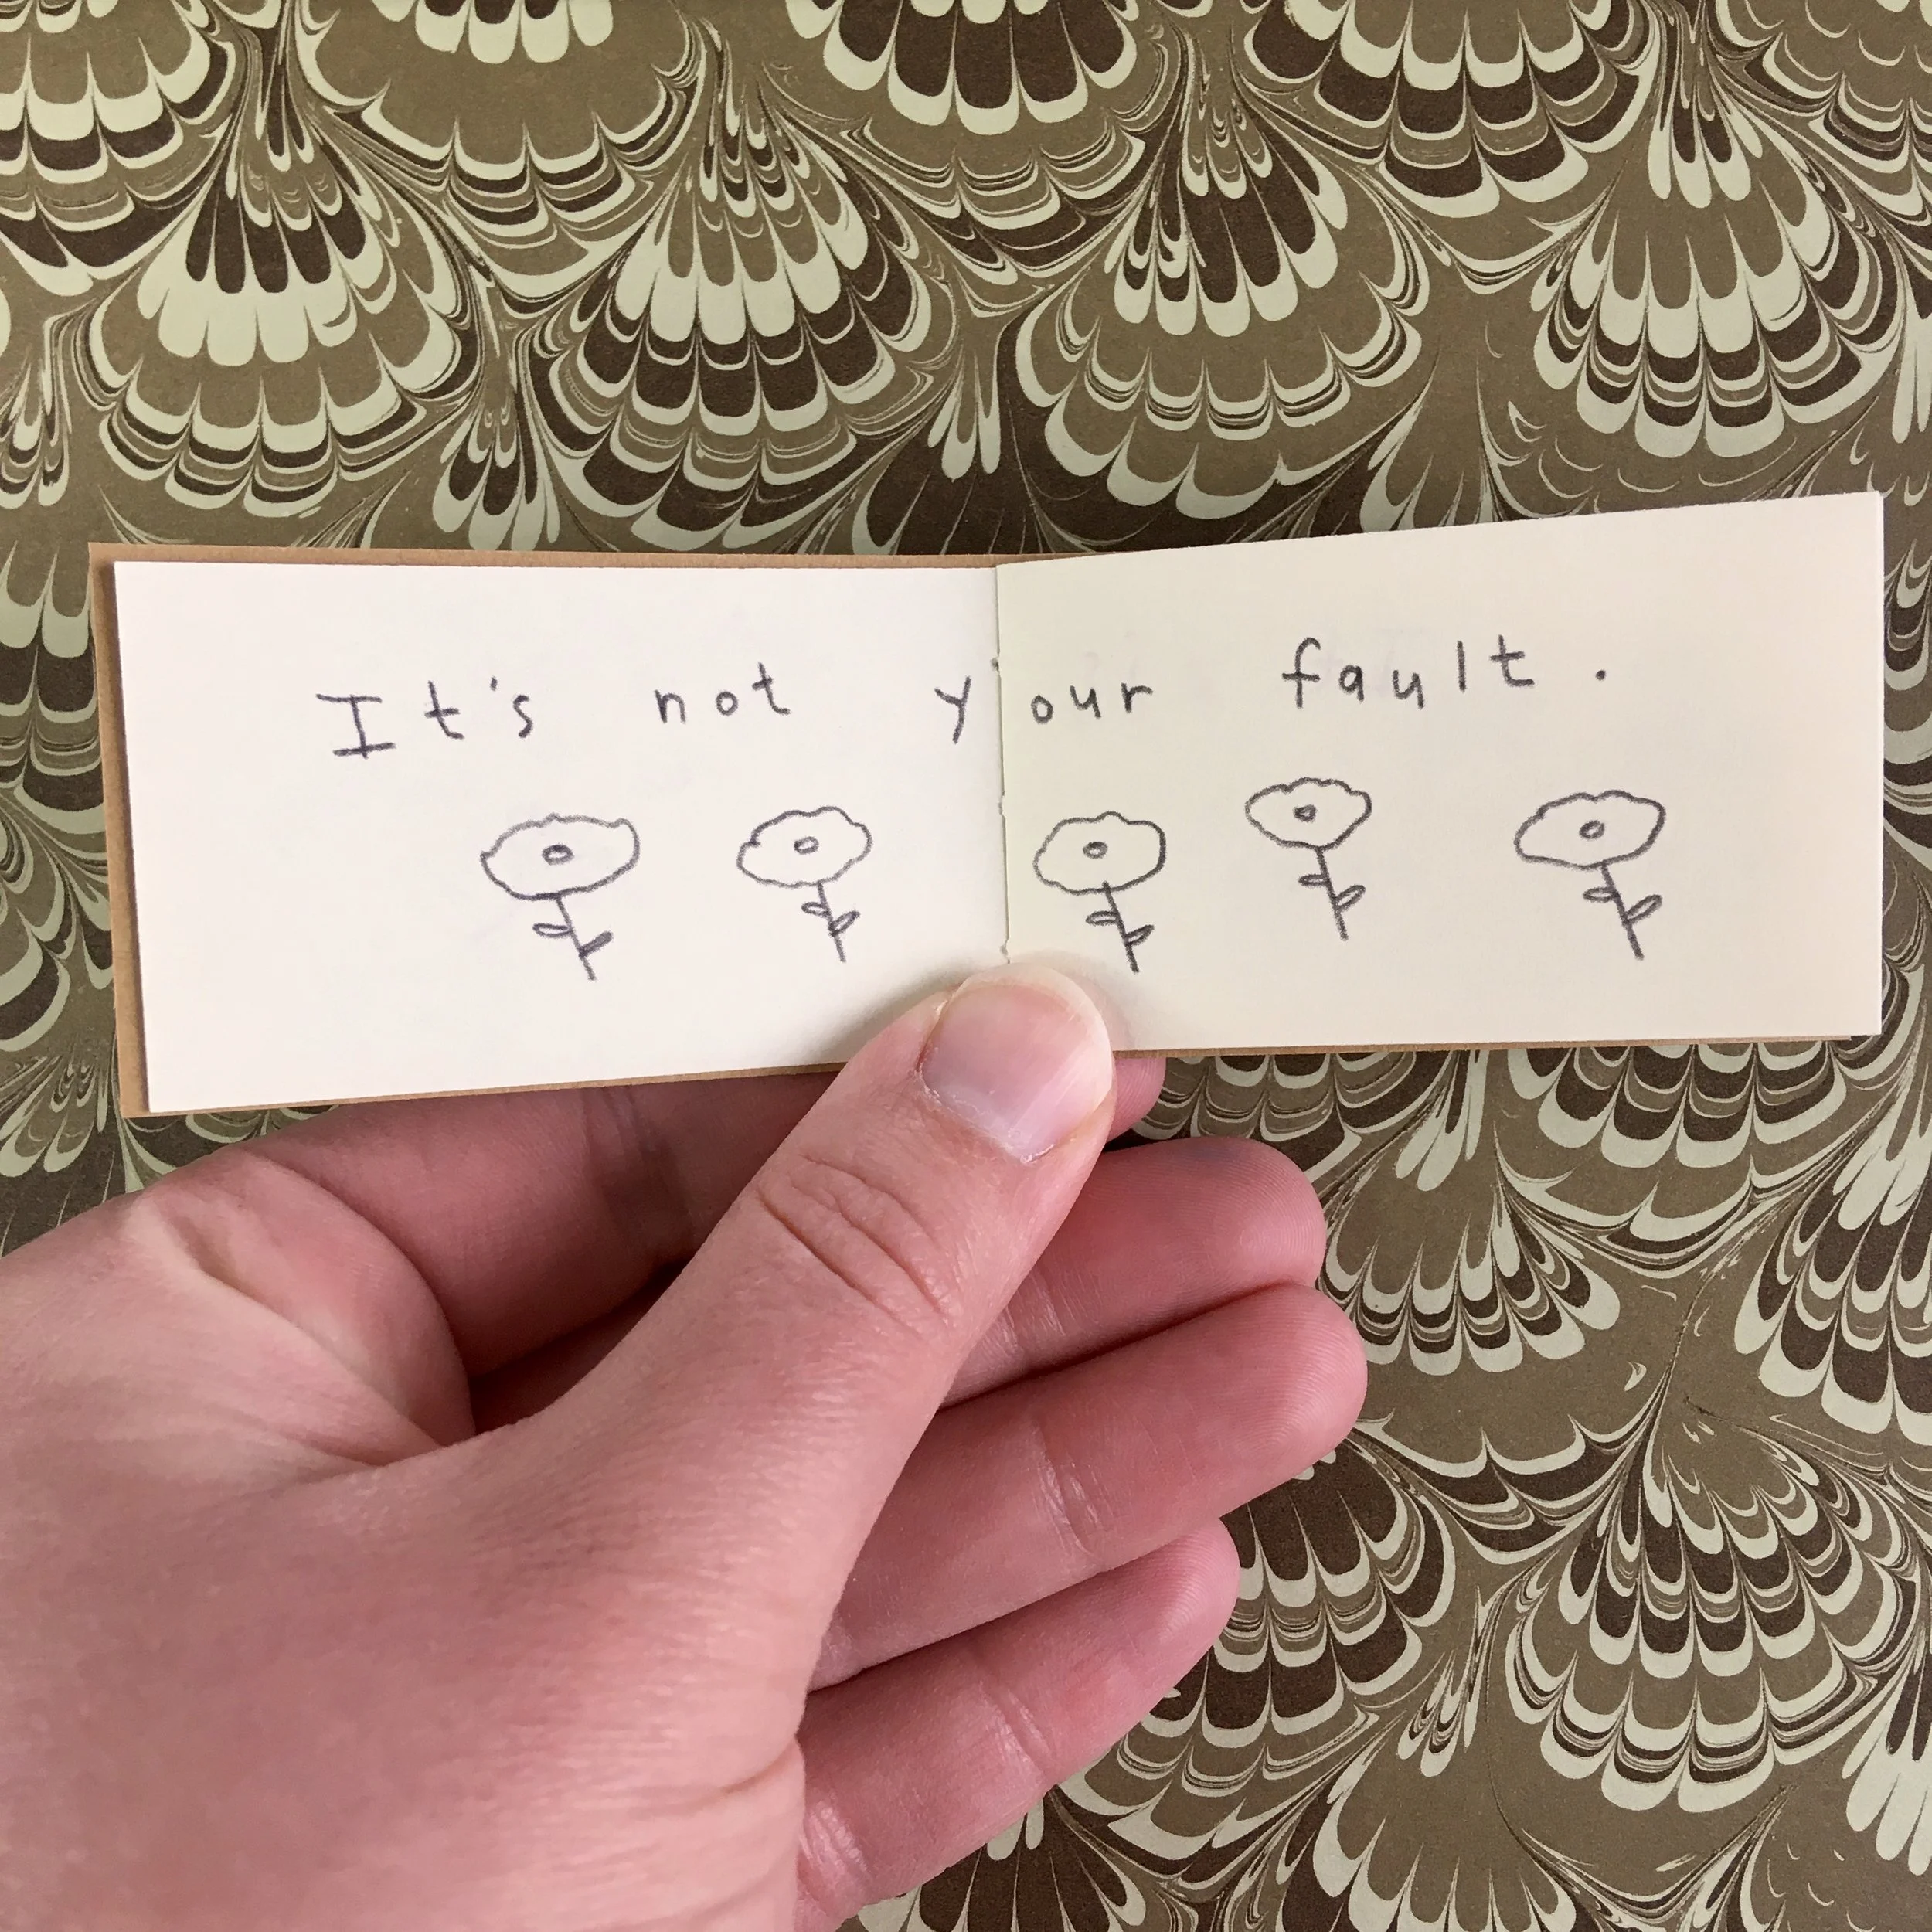 It's not your fault.